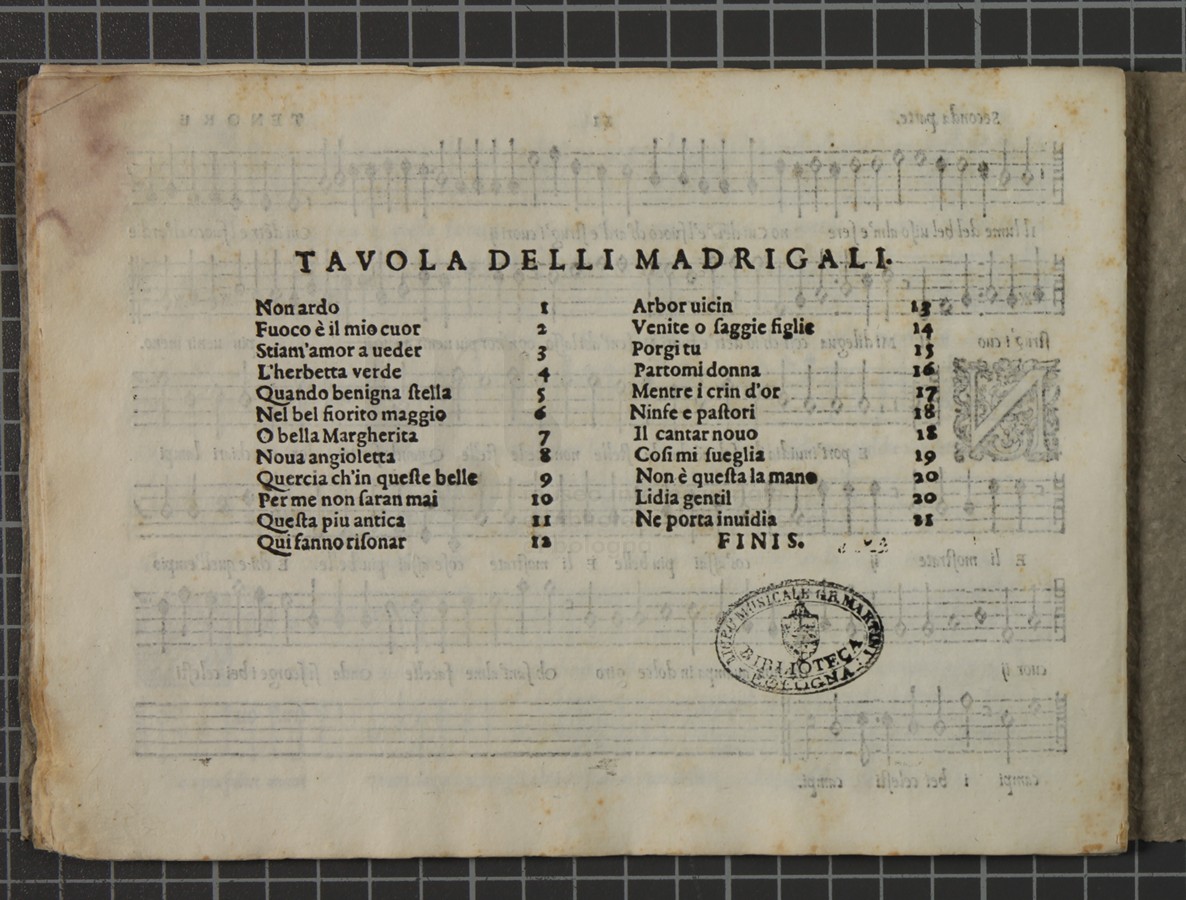 TAVOLA DELLI MADRIGALI.
Non ardo 1
Fuoco è il mio cuor 2
Stiam'amor a ueder 3
L'herbetta verde 4
Quando benigna ſtella 5
Nel bel fiorito maggio 6
O bella Margherita 7
Noua angioletta 8
Quercia ch'in queſte belle 9
Per me non ſaran mai 10
Queſta piu antica 11
Qui fanno riſonar 12
Arbor uicin 13
Venite o ſaggie figlie 14
Porgi tu 15
Partomi donna 16
Mentre i crin d'or 17
Ninfe e paſtori 18
Il cantar nouo 18
Coſi mi ſueglia 19
Non è queſta la mano 20
Lidia gentil 20
Ne porta inuidia 21
FINIS.
MUSICALE G.B. MARTINI
BIBLIOTECA
BOLOGNA